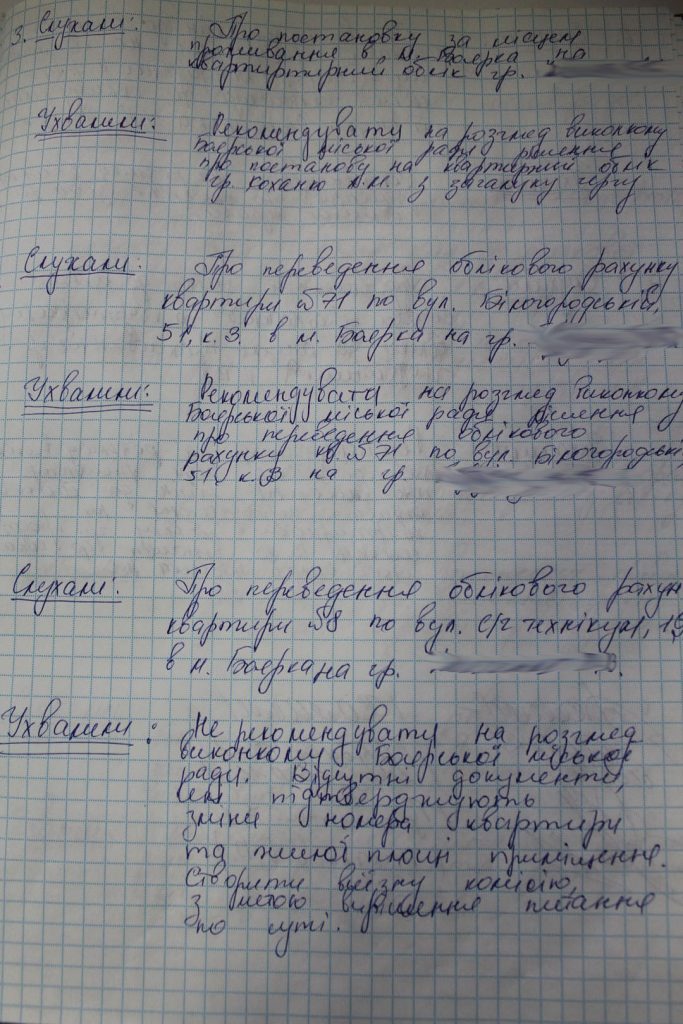 3. Слухали: Про постановку за місцем
проживання в м. Боярка на
квартиртирний облік гр.
Ухвалили: Рекомендувати на розгляд виконкому
Боярської міської ради рішення
про постанову на квартирний облік
гр. Коханю А.М. з загальну чергу
Слухали: Про переведення облікового рахунку
квартири №71 по вул. Білогородській,
51, к. 3. в м. Боярка на гр.
Ухвалили: Рекомендувати на розгляд Виконкому
Боярської міської ради рішення
про переведення облікового
рахунку кв. №71 по вул. Білогородські
51 к. 3 на гр.
Слухали: Про переведення облікового рахун
квартири №8 по вул. С/г технікум, 19
в м. Боярка на гр.
Ухвалили: Не рекомендувати на розгляд
виконкому Боярської міської
ради. Відсутні документи,
підтверджують
зміни номера квартири
та жилої площі приміщення.
Створити виїзну комісію,
з метою вирішення питання
по суті.